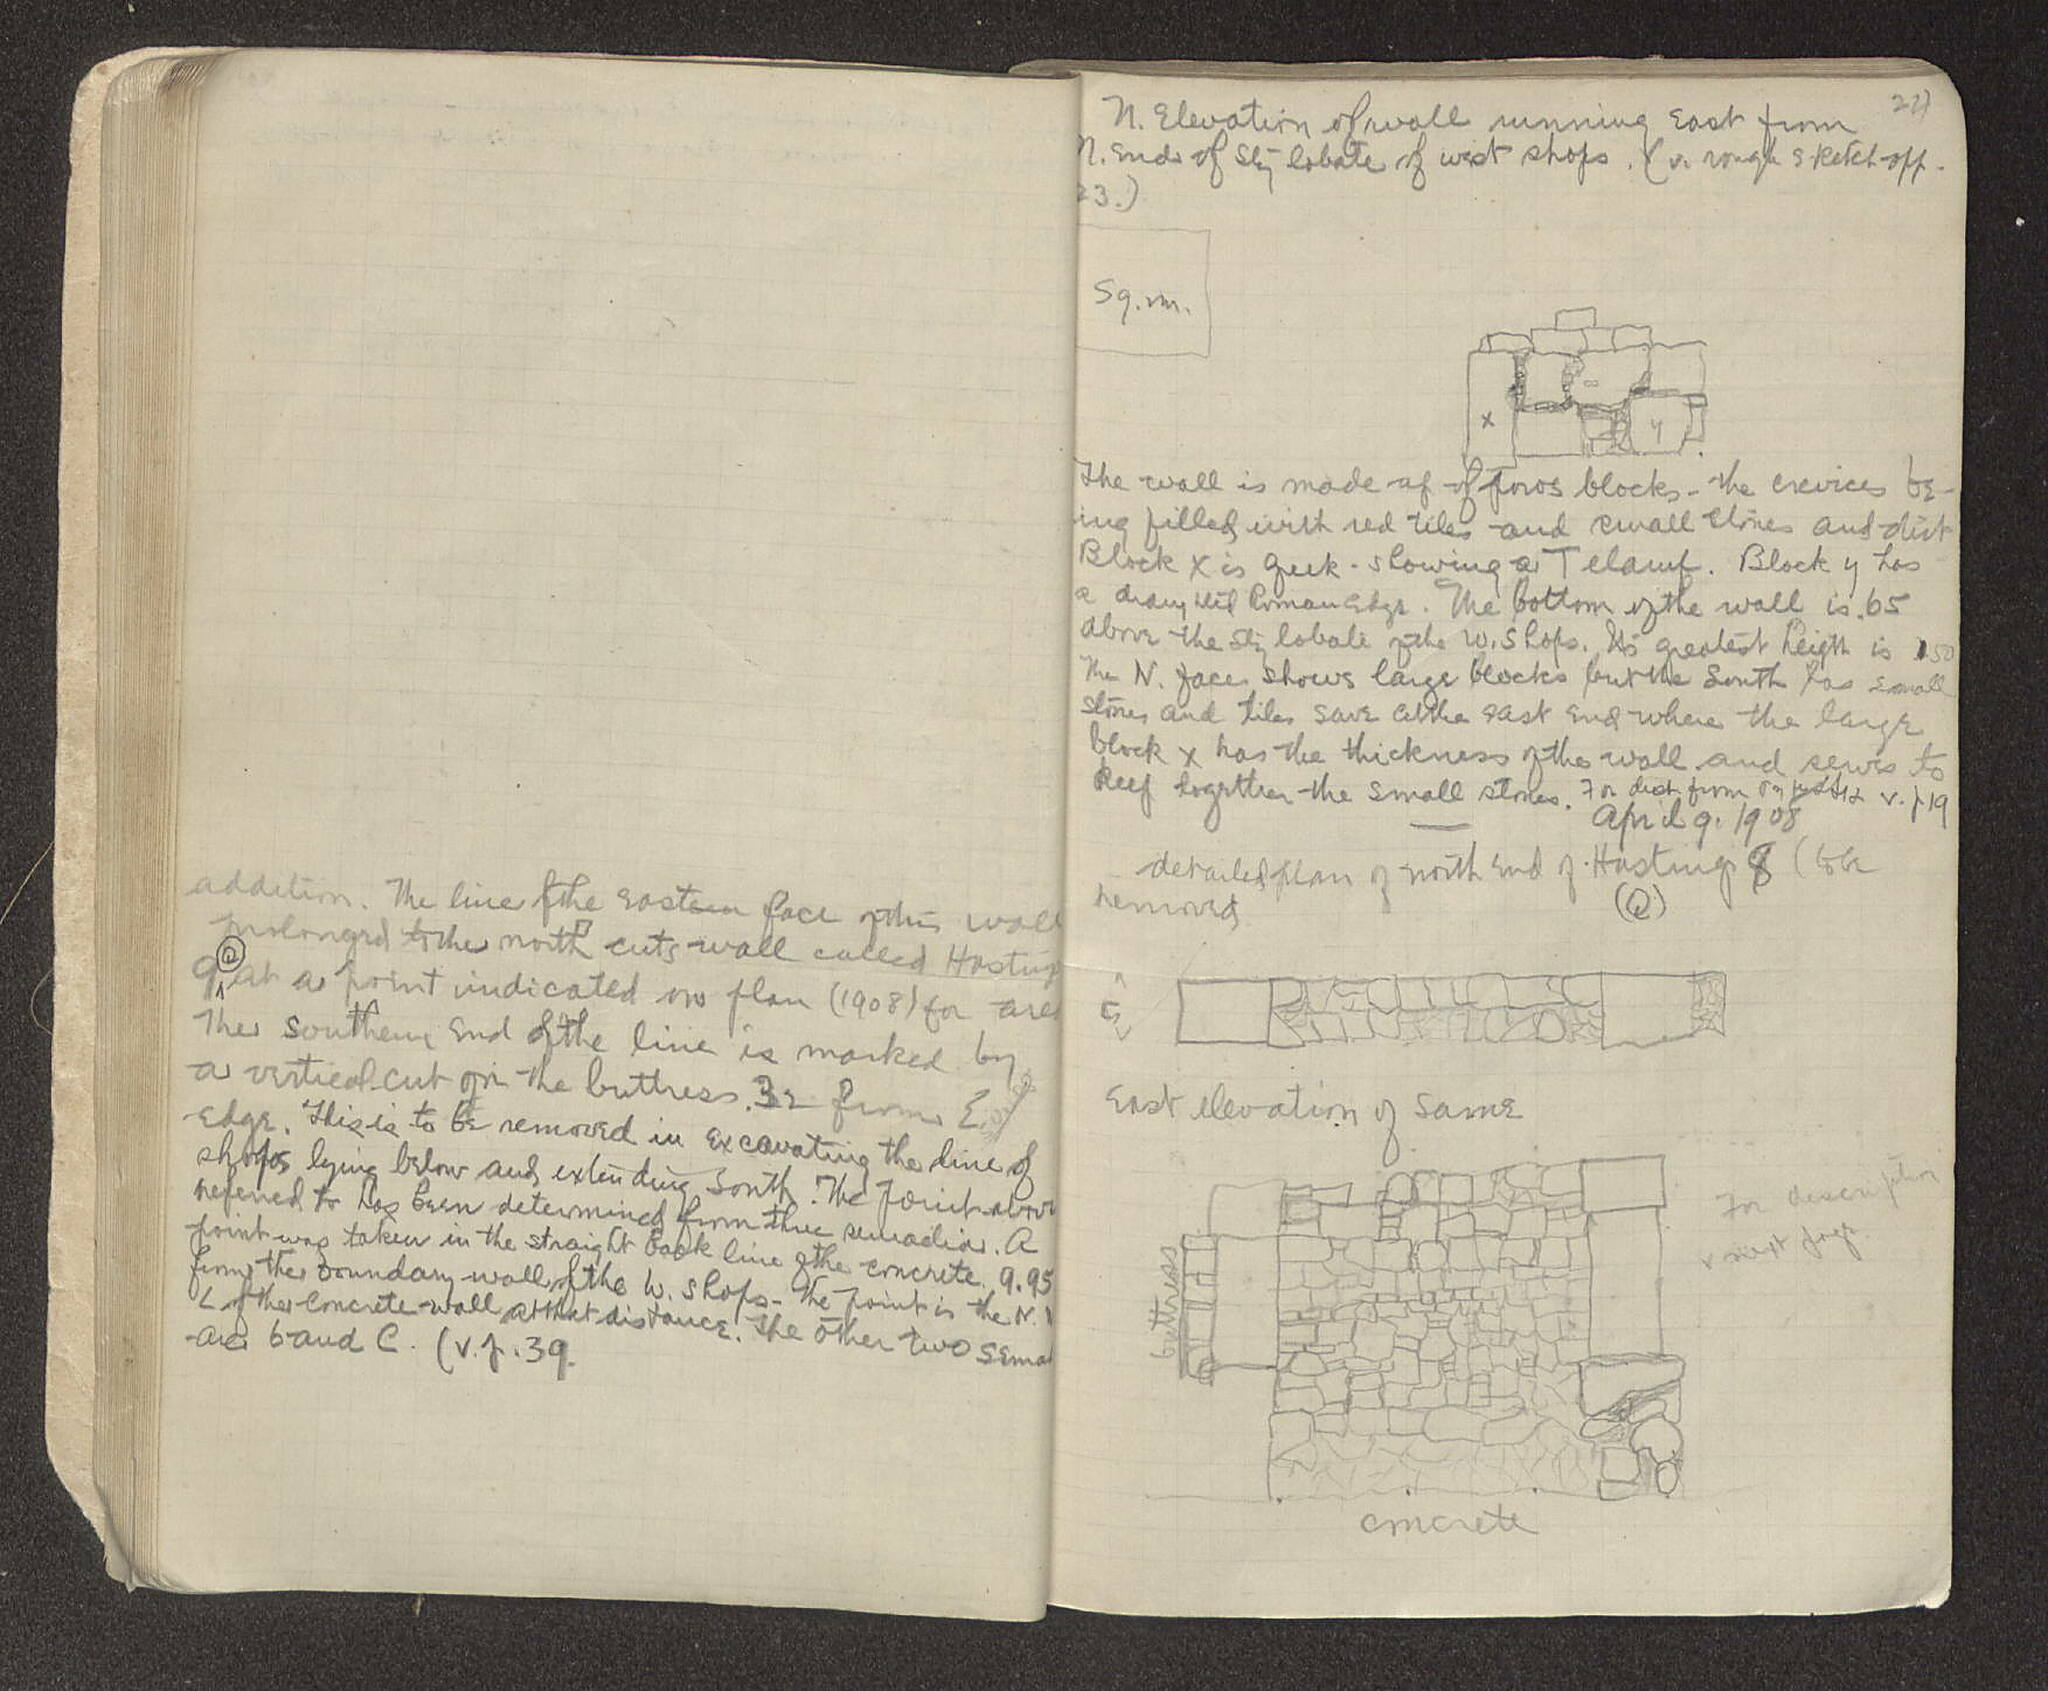 addition. The line of the eastern face of this wall
prolonged to the north cuts wall called Hastings
9 Q at a point indicated on plan (1908) for area
The southern end of the line is marked by
a vertical cut on the buttress .32 from E.
edge. This is to be removed in excavating the line of
shops lying below and extending south. The point above
referred to has been determined from three semadia. A
point was taken in the straight back line of the concrete 9.95
from the boundary wall of the W. shops - the point is the N.
∠ of the concrete wall at that distance. The other two semad
are b and C. (v. p. 39.
N. Elevation of wall running east from
N. end of Stylobate of west shops. (v. rough sketch opp.
23.)
Sq. m.
x
y
The wall is made up of poros blocks - the crevices be-
ing filled with red tiles and small stones and dirt
Block x is Greek - showing a T clamp. Block y has
a Roman edge. The bottom of the wall is .65
above the stylobate of the W. shops. Its greatest heigth is 1.50
The N. face shows large blocks but the South has small
stones and tiles save at the east end where the large
block x has the thickness of the wall and serves to
keep together the small stones. For dist. from v. p 19
April 9. 1908
detailed plan of north end of Hastings 8 (to be
removed (Q)
East elevation of same
buttress
For description
v next page
concrete